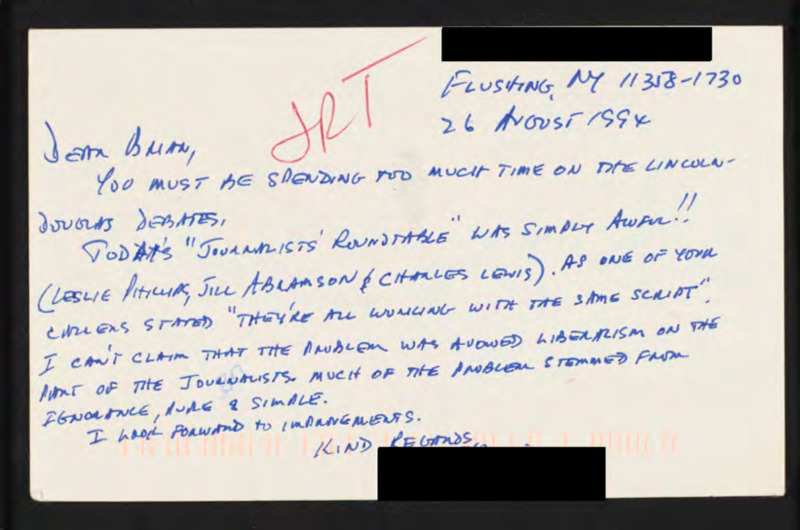 JRT
FLUSHING, NY 11358-1730
26 AUGUST 1994
DEAR BRIAN,
YOU MUST BE SPENDING TOO MUCH TIME ON THE LINCOLN-
DOUGLAS DEBATES.
TODAY'S "JOURNALISTS' ROUNDTABLE" WAS SIMPLY AWFUL!!
(LESLIE PHILLIPS, JILL ABRAMSON & CHARLES LEWIS). AS ONE OF YOUR
CALLERS STATED "THEY'RE ALL WORKING WITH THE SAME SCRIPT".
I CAN'T CLAIM THAT THE PROBLEM WAS AVOWED LIBERALISM ON THE
PART OF THE JOURNALISTS. MUCH OF THE PROBLEM STEMMED FROM
IGNORANCE, PURE & SIMPLE.
I LOOK FORWARD TO IMPROVEMENTS.
KIND REGARDS,